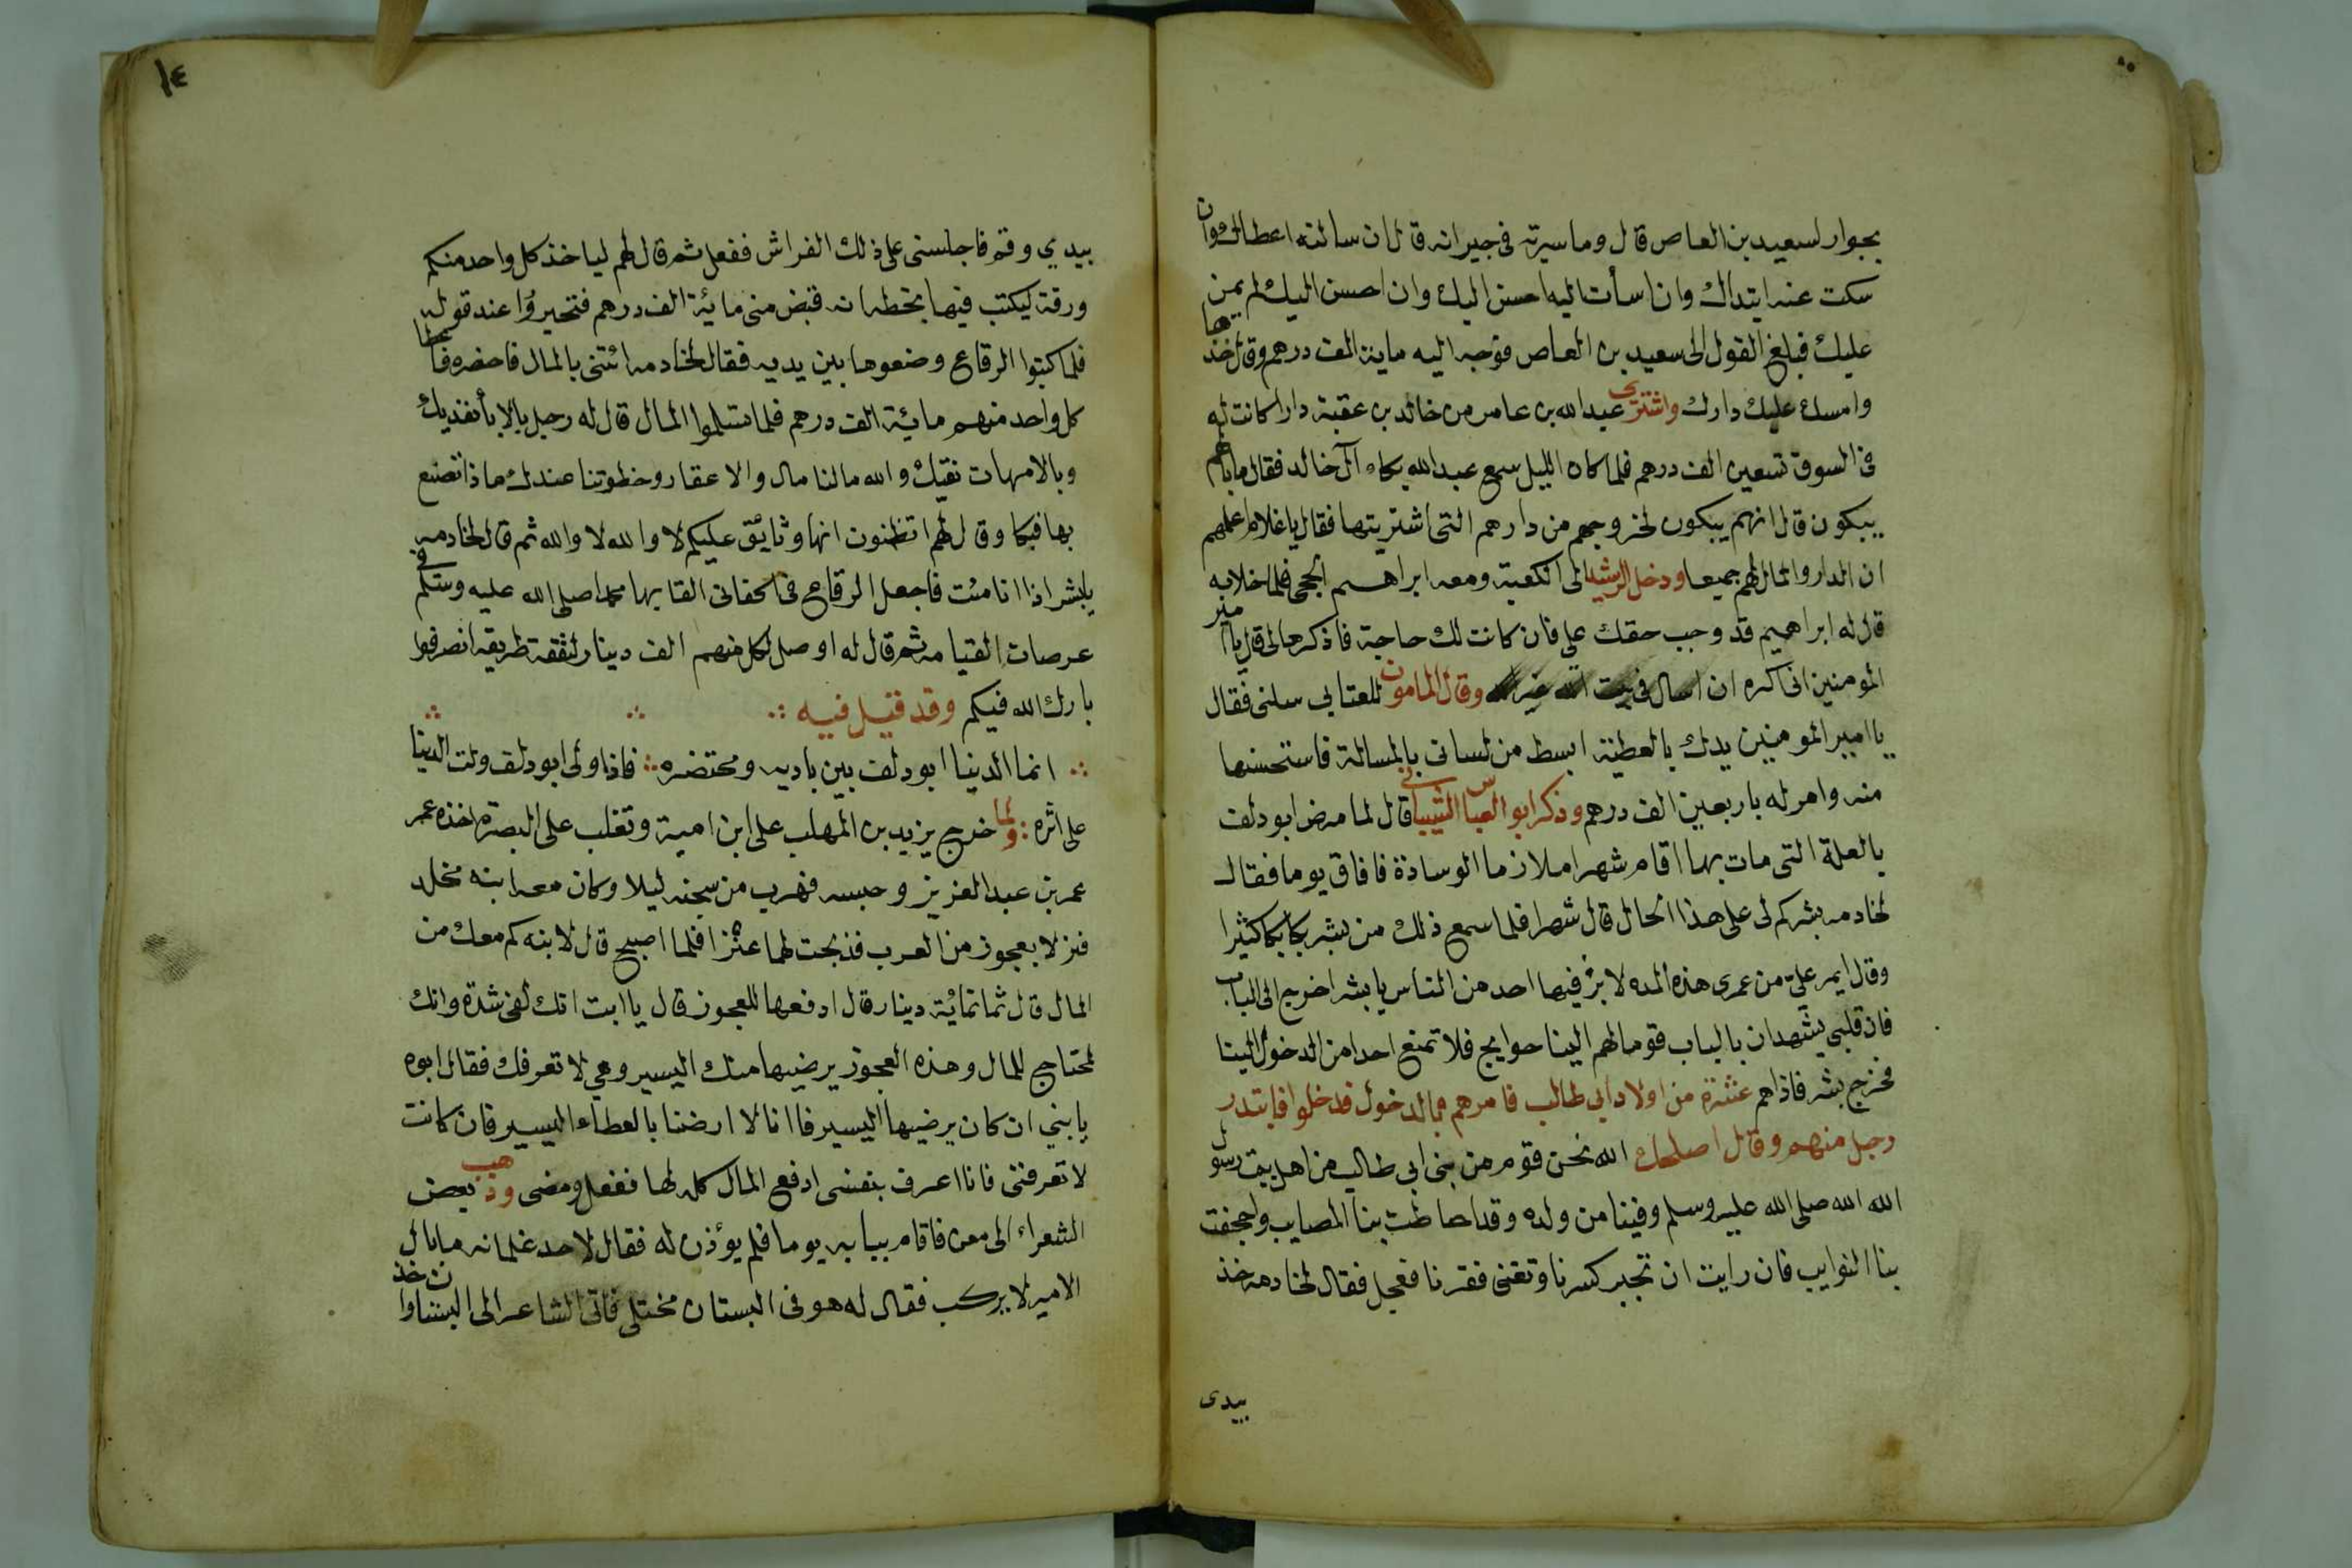 بجوار لسعيد بن العاص قال وما سيرته فى جيرانه قال ان سالته اعطاك وان
سكت عنه ابتداك وان اسأت اليه احسن اليك وان احسن اليك لم يمن
عليك فبلغ القول الى سعيد بن العاص فوجه اليه ماية الف درهم وقال خذها
وامسك عليك دارك واشترى عبد الله بن عامر من خالد بن عقبة دارا كانت له
فى السوق تسعين الف درهم فلما كان الليل سمع عبد الله بكاء آل خالد فقال ما بالهم
يبكون قال انهم يبكون لخروجهم من دارهم التى اشتريتها فقال يا غلام اعلمهم
ان الدار والمال لهم جميعا ودخل الرشيد الى الكعبة ومعه ابراهيم الحجى فلما خلا به
قال له ابراهيم قد وجب حقك على فان كانت لك حاجة فاذكرها لى قال يا امير
المومنين انى اكره ان اسال فى بيت الله غير الله وقال المامون للعتابى سلنى فقال
يا امير المومنين يدك بالعطية ابسط من لسانى بالمسالة فاستحسنها
منه وامر له باربعين الف درهم وذكر ابو العباس الشيبانى قال لما مرض ابو دلف
بالعلة التى مات بها اقام شهرا ملازما الوسادة فافاق يوما فقال
لخادمه بشر كم لى على هذا الحال قال شهرا فلما سمع ذلك من بشر بكا بكا كثيرا
وقال ايمر على من عمرى هذه المده لا بر فيها احد من الناس يا بشر اخرج الى الباب
فان قلبى يشهد ان بالباب قوما لهم الينا حوايج فلا تمنع احدا من الدخول الينا
فخرج بشر فاذا هم عشرة من اولاد ابى طالب فامرهم بالدخول فدخلوا فابتدر
رجل منهم وقال اصلحك الله نحن قوم من بنى ابى طالب من اهل بيت رسول
الله الله صلى الله عليه وسلم وفينا من ولده وقد احاطت بنا المصايب واجحفت
بنا النوايب فان رايت ان تجبر كسرنا وتغنى فقرنا فعجل فقال لخادمه خذ
بيدى
١٤
بيدي وقم فاجلسنى على ذلك الفراش ففعل ثم قال لهم لياخذ كل واحد منكم
ورقة ليكتب فيها بخطه انه قبض منى مائة الف درهم فتحيروا عند قوله
فلما كتبوا الرقاع وضعوها بين يديه فقال لخادمه ائتنى بالمال فاحضره فاعطا
كل واحد منهم مائة الف درهم فلما تسلموا المال قال له رجل بالابأ نفديك
وبالامهات نقيك والله مالنا مال والا عقار وخطوتنا عندك ماذا تصنع
بها فبكا وقال لهم اتظنون انها وثائق عليكم لا والله لا والله ثم قال لخادمه
يا بشر اذا انا مت فاجعل الرقاع فى اكفانى القا بها محمدا صلى الله عليه وسلم فى
عرصات القيامه ثم قال له اوصل لكل منهم الف دينار لنفقة طريقه انصرفوا
بارك الله فيكم وقد قيل فيه
انما الدنيا ابو دلف بين باديه ومحتضره فاذا ولى ابو دلف ولت الدنيا
على اثره ولما خرج يزيد بن المهلب على ابن امية وتغلب على البصرة اخذه عمر
عمر بن عبد العزيز وحبسه فهرب من سجنه ليلا وكان معه ابنه مخلد
فنزلا بعجوز من العرب فذبحت لهما عنزا فلما اصبح قال لابنه كم معك من
المال قال ثمانمائة دينار قال ادفعها للعجوز قال يا ابت انك لفى شدة وانك
لمحتاج للمال وهذه العجوز يرضيها منك اليسير وهي لا تعرفك فقال ابوه
يا بني ان كان يرضيها اليسير فاانا لا ارضنا بالعطاء اليسير فان كانت
لا تعرفنى فانا اعرف بنفسى ادفع المال كله لها ففعل ومضى وذهب بعض
الشعراء الى معن فاقام ببابه يوما فلم يوذن له فقال لاحد غلمانه ما بال
الامير لا يركب فقال له هو فى البستان مختلى فاتى الشاعر الى البستان واخذ